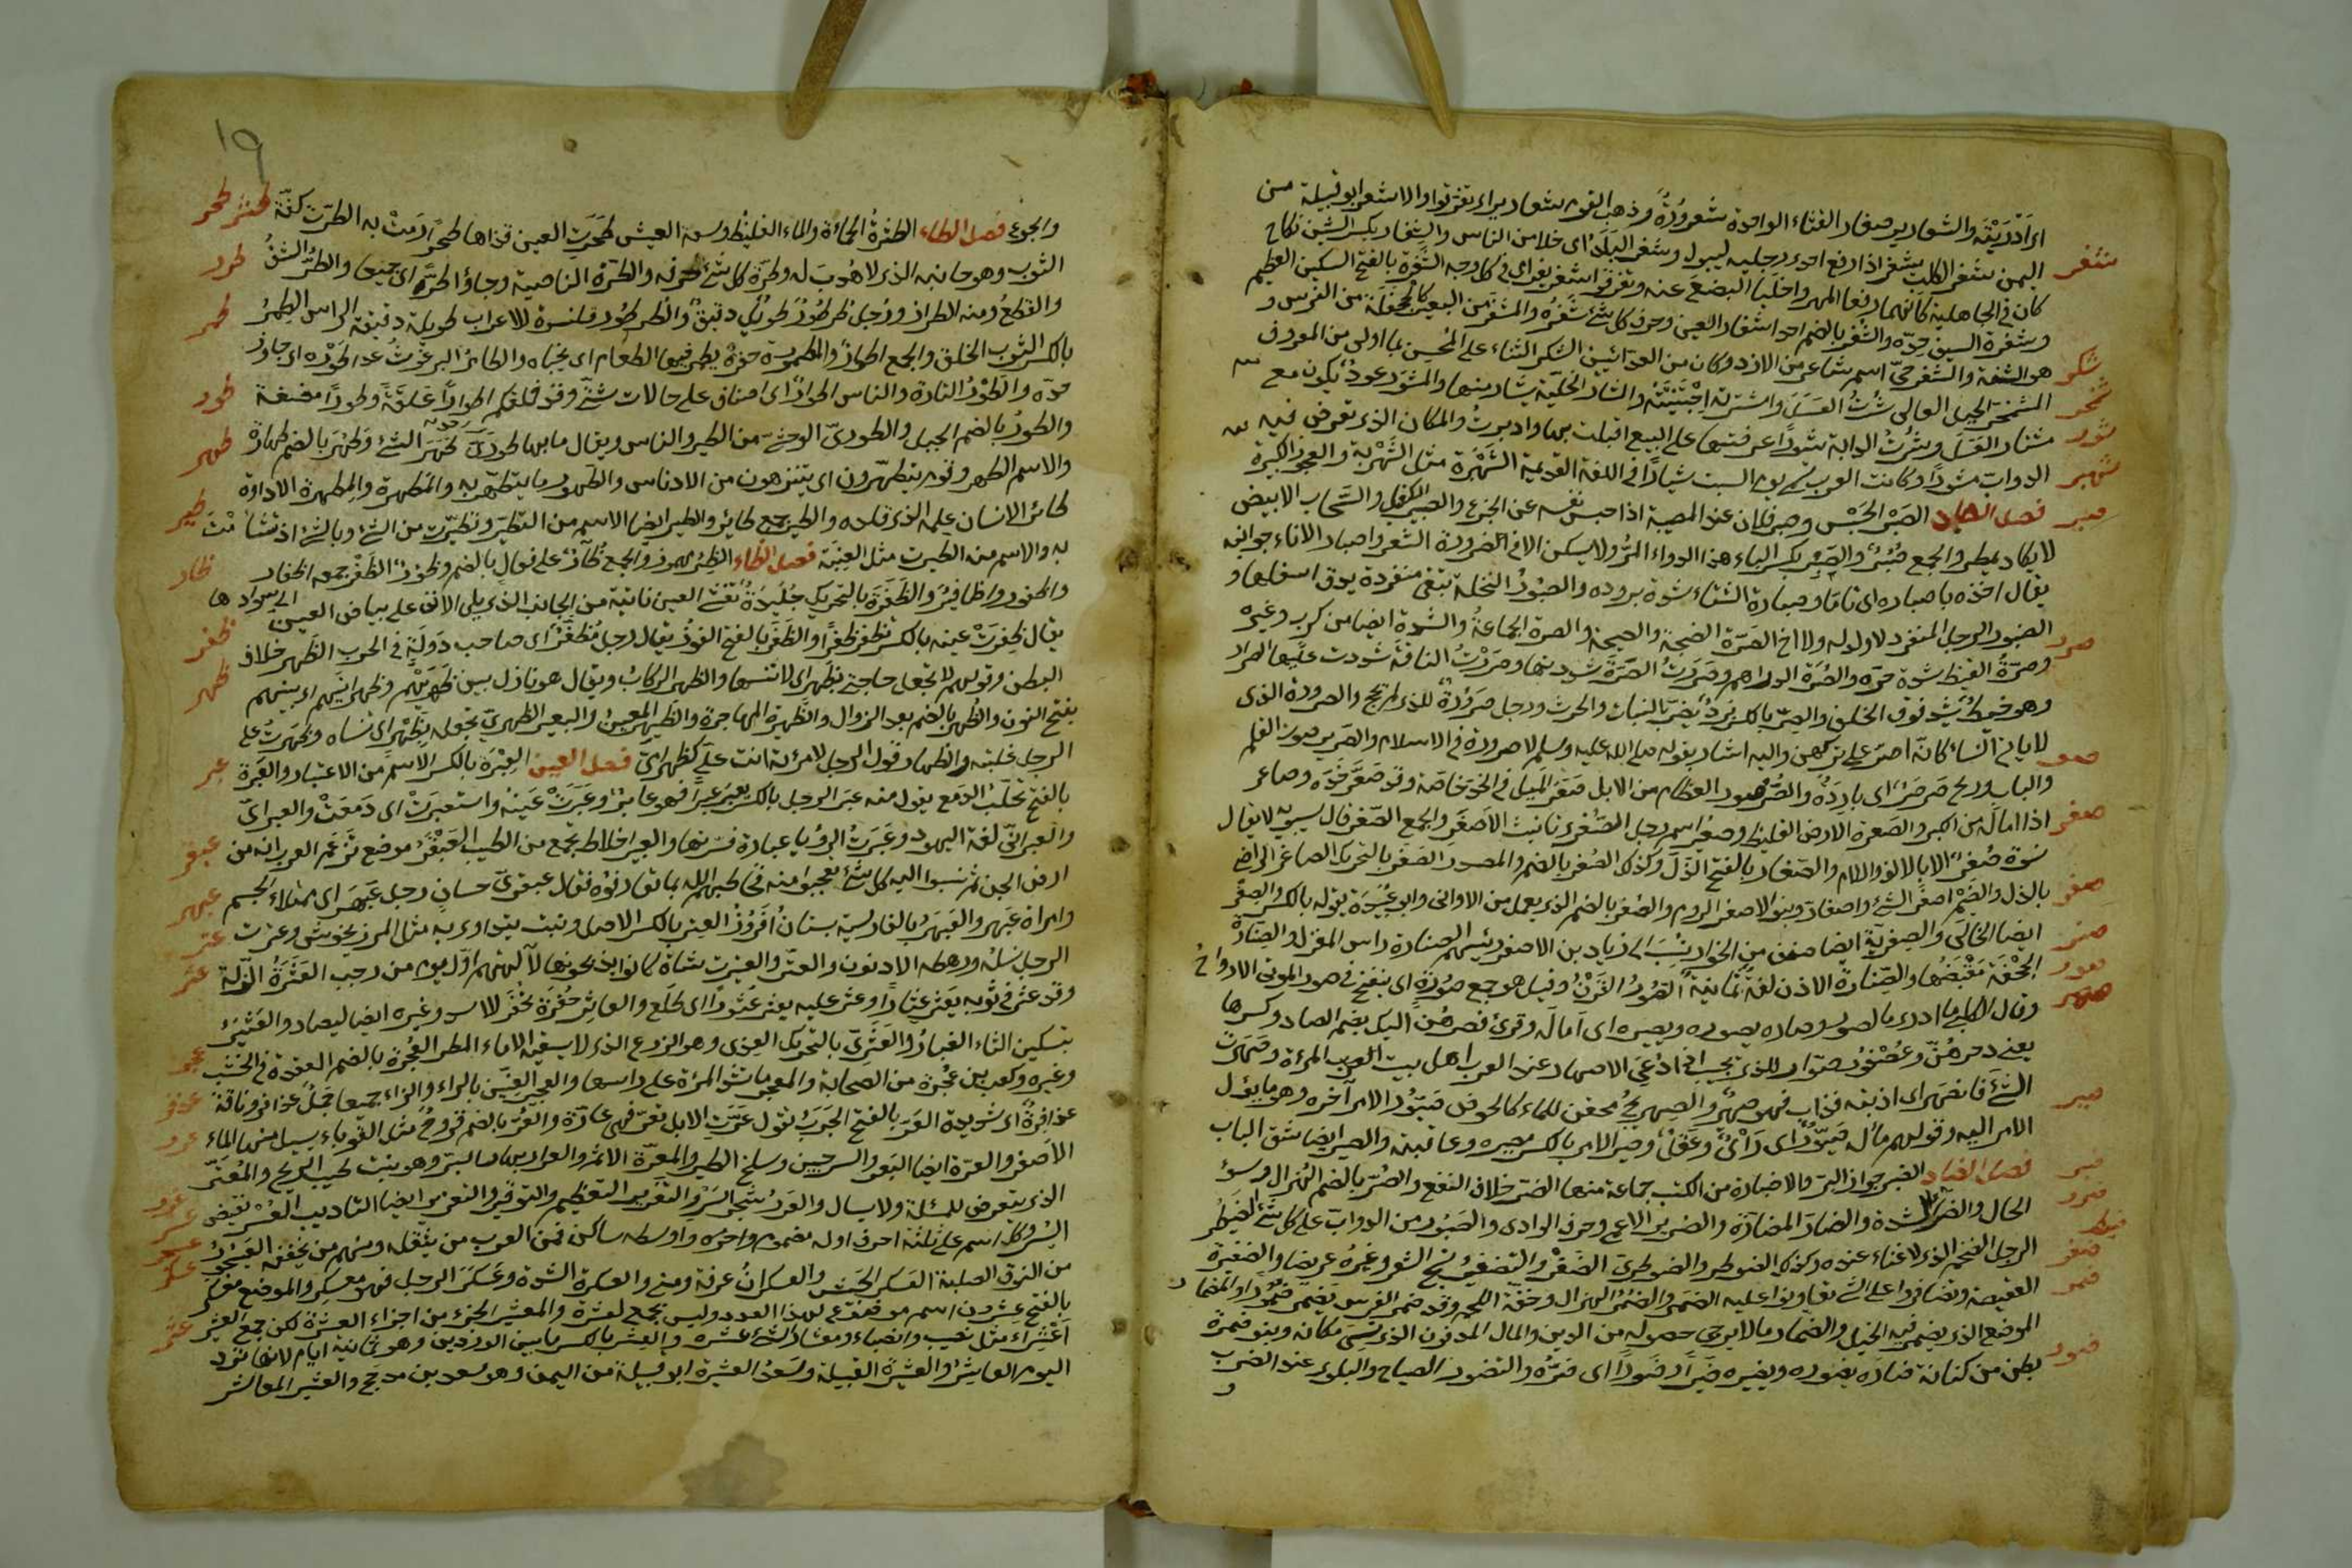 اى اَدْرَيْقَه والشعارير صغار القثاء الواحدة شُعرورةٌ وذهب القوم شعارير اى تفرّقوا والاشعر ابو قبيلة من
شغر اليمن شَغَر الكلب يشغر اذا رفع احدى رجليه ليبول وشغر البَلَدُ اى خلا من الناس والشِّغار بكسر الشين نكاح
كان فى الجاهلية كانهما رفعا المهر واخليا البضع عنه وتفرّقوا شغر بغر اى فى كل وجه الشَّفْرَة بالفتح السكين العظيم
وشفرة السيف حدّه والشُّفْر بالضم احد اشفار العين وحرف كل شئ شُفْرُه والمشفر من البعير كالجحفلة من الفرس و
شكر هو الشفة والشنفرى اسم شاعر من الازد وكان من العدّائين الشكر الثناء على المُحْسِن بما اولى من المعروف
شمخر المشمخرّ الجبل العالى
شور شُرْتُ العَسَل واشترته اجْتَنَيْتُه والشار الخلية يشار منها والمشور عودٌ يكون مع
مشتار العَسَل وشُرْتُ الدابة شَوْرًا عرضتها على البيع اقبلت بها وادبرت والمكان الذى تعرض فيه
شهبر الدواب مشوار وكانت العرب تسمى يوم السبت شيارًا فى اللغة القديمة الشَّهْبَرة مثل الشَّهْرَبة والعجوز الكبيرة
صبر فصل الصاد الصَّبْر الحَبْس وصبر فلان عند المصيبة اذا حبس نفسه عن الجزع والصبير الكفيل والسَّحاب الابيض
لا يكاد يمطر والجمع صُبُرٌ والصَّبِر بكسر الباء هذا الدواء المُرّ ولا يسكن الا فى ضرورة الشعر واصبار الاناء جوانبه
يقال اخذه باصباره اى تامّا وصبارة الشتاء شدة برده والصُّنْبُور النخلة تبقى منفردة يدق اسفلها و
صرر الصنبور الرجل المنفرد لا ولد له ولا اخ الصَّرَّة الضجة والصيحة والصرة الجماعةُ والشدة ايضا من كرب وغيره
وصَرَّةُ القيظ شدة حرّه والصُّرّة الدراهم وصَرَرْتُ الصُّرّة شددتها وصررتُ الناقة شددت عليها الصرار
وهو خيط يُشد فوق الخلف والصِّرّ بالكسر بَرْدٌ يضرّ بالنبات والحرث ورجل صَرُورَةٌ للذى لم يحج والصرورة الذى
لا ياتى النساء كانّه اصرّ على تركهن واليه اشار بقوله صلى الله عليه وسلم لا صرورة فى الاسلام والصرير صوت القلم
صعر والباب وريح صرصرٌ اى بارِدَةٌ والصُّرْصُور العظام من الابل صَعَر الميل فى الخد خاصّة وقد صَعَّرَ خَدَّه وصاعر
صغر اذا اماله من الكبر والصعرة الارض الغليظ وصُعَيْر اسم رجل الصُّغْرَى تانيث الاَصْغَر والجمع الصُّغَر قال سيبويه لا يقال
نسوة صُغَرٌ الا بالالف واللام والصَّغار بالفتح الذُّلّ وكذلك الصُّغْر بالضم والمصدر الصَّغَر بالتحريك الصاغر الراضى
صفر بالذل والضيم اصفرّ الشئ واصفارّ وبنو الاصفر الروم والصُّفْر بالضم الذى يعمل منه الاوانى وابو عبيدة يقوله بالكسر والصِفْر
صنر ايضا الخالى والصفرية ايضا صنف من الخوارج نُسِبَ الى زياد بن الاصفر رئيسهم الصنارة راس المغزل والصنارة
صور الجُحْفَة مَقْبَضُها والصِّنّارة الاذن لغة يمانية الصُّورُ القَرْنُ وقيل هو جمع صُورَةٍ اى ينفخ فى صور الموتى الارواح
صهر وقال الكلبى ما ادرى ما الصور وصاره يصوره ويصيره اى اَماله وقرئ فصرهُنّ اليك بضم الصاد وكسرها
يعنى وجّهْهُنّ وعُصْفُورٌ صوّار للذى يجيب اذا دُعِى الاصهار عند العرب اهل بيت المرءة وصَهَرْتُ
صير الشَّئَ فانصهر اى اذبته فذاب فهو صهِيرٌ والصهريج مُحقن للماء كالحوض صَيّورُ الامر آخره وهو ما يؤل
الامر اليه وقولهم ماله صَيّورٌ اى رَأْىٌ وعَقْلٌ وصِيْر الامر بالكسر مصيره وعاقبته والصير ايضا شق الباب
ضبر فصل الضاد الضبر جوز البرّ والاضبارة من الكتب جماعة منها
ضرر الضر خلاف النفع والضُّرّ بالضم الهُزال وسوء
الحال والضرّآء الشدة والضارّ المضارّة والضرير الاعمى وحرف الوادى والصَّبُور من الدوابّ على كل شئ
ضيطر الضَيْطَر الرجل الضخم الذى لا غناء عنده وكذلك الضوطر والضوطرى
ضفر الضَّفْرُ والتضفيرُ نَسْج الشعر وغيره عريضا والضفيرة
ضمر العقيصة وتضافروا على الشئ تعاونوا عليه الضمر والضُّمُر الهزال وخِفّة اللحم وقد ضمر الفرس يضمر ضُمُورًا والمضمار
الموضع الذى يضمر فيه الخيل والضمار ما لا يرجى حصوله من الدين والمال المدفون الذى نسى مكانه وبنو ضمرة
ضور بطن من كنانة ضاره يضوره ويضيره ضَيْرًا وضَوْرًا اى ضَرَّه والتضور الصياح والتلوى عند الضرب
و
١٩
طثر طحر والجوع فصل الطاء الطثرةُ الحمأة والماء الغليظ وسعة العيش طَحَرَت العين قذاها طحرًا رمَتْ به الطرّة كفّة
طرر الثوب وهو جانبه الذى لا هُدْبَ له وطرة كل شئ حرفه والطرّة الناصية وجاؤا طُرّا اى جميعا والطَّرّ الشقّ
طمر والقطع ومنه الطرار ورجل طُرطورٌ طويل دقيق والطرطور قلنسوة للاعراب طويلة دقيقة الراس الطِمْرُ
بالكسر الثوب الخلق والجمع اطمارٌ والمطمورة حفرة يطمر فيها الطعام اى يخبأه والطامر البرغوث
طور عدا طَوْرَه اى جاوز
حدّه والطَّوْرُ التارة والناس اطوارٌ اى اصناف على حالات شتى وقد خلقكم اطوارًا عَلَقَةً وطورًا مضغة
طهر والطُّور بالضم الجبل والطورىّ الوحشى من الطير والناس ويقال ما بها طُورىّ طَهَرَ الشئ وطَهُر بالضم طهارةً
والاسم الطهر وقوم يتطهّرون اى يتنزهون من الادناس والطّهور ما يتطهّر به والمَطْهرة والمِطهرة الاداوة
طير طائر الانسان عمله الذى قلده والطير جمع طائر والطير ايضا الاسم من التطيّر وتطيّرت من الشئ وبالشئ اذا تشأّمْتَ
ظار به والاسم منه الطيرة مثل العِنَبَة فصل الظاء الظِئر مهموز والجمع ظُآرٌ على فُعال بالضم وظؤرٌ
ظفر الظُّفْر جمعه اظفار
واظفور واظافيرُ والظَّفَرَة بالتحريك جُلَيْدةٌ تُغَشّى العين نابتة من الجانب الذى يلى الانف على بياض العين الى سوادها
يقال ظَفِرَتْ عينه بالكسر تظفر ظفرًا والظَّفَر بالفتح الفوز يقال رجل مُظَفَّرٌ اى صاحب دَوْلَة فى الحرب
ظهر الظهر خلاف
البطن وقولهم لا تجعل حاجتى بظهر اى لا تنسها والظهر الركاب ويقال هو نازل بين ظَهْرَيْهم وظهرانَيْهم اى بينهم
بفتح النون والظُّهر بالضم بعد الزوال والظهيرة الهاجرة والظَّهير المعينُ والبعير الظهرىّ تجعله بظَهْر اى تنساه وظهرتُ على
عبر الرجل غلبته والظهار قول الرجل لامرئته انت علىّ كظهر اُمّى فصل العين العِبْرَة بالكسر الاسم من الاعتبار والعَبْرة
بالفتح تحَلّبُ الدمع يقول منه عبر الرجل بالكسر يعبر عبرا فهو عابر وعَبَرَتْ عَينُه واستعبرَتْ اى دَمَعَتْ والعبرانىّ
عبقر والعبرانىّ لغة اليهود وعَبَرتُ الرؤيا عبارة فسّرتها والعبير اخلاط يجمع من الطيب العَبْقَرُ موضع تزعم العرب انه من
عبهر ارض الجن ثم نسبوا اليه كل شئ تعجبوا منه فخاطبهم الله بما تعارفوه فقال عبقرىّ حسان رجل عَبْهَر اى ممتلئ الجسم
عتر وامرأة عَبْهر والعبهر بالفارسية بستان اَفروز العِتر بالكسر الاصل ونبت يتداوى به مثل المرزنجوش وعترة
عثر الرجل نسله ورهطه الادنون والعتر والعتيرة شاة كانوا يذبحونها لآلهتهم اوّل يوم من رجب العَثْرَةُ الزلّة
وقد عثر فى ثوبه يَعثر عثارًا وعثر عليه يعثر عُثورًا اى طلع والعاثور حُفْرة تُحْفَر للاسد وغيره ايضا ليصاد والعِثْيَر
عجر بتسكين الثاء الغبارُ والعَثَرىّ بالتحريك العِذى وهو الزرع الذى لا يسقيه الا ماء المطر العُجْرة بالضم العقدة فى الخشب
عذفر وغيره وكعب بن عُجْرة من الصحابة والمعجر ما تشدّ المرءة على راسها والعجير العنّين بالراء والزاء جميعا جَمَلٌ عذافر وناقة
عرر عذافرةٌ اى شديدة العَرّ بالفتح الجَرَبُ تقول عَرّتِ الابل تعرّ فهى عارّة والعُرّ بالضم قروحٌ مثل القوباء يسيل منها الماء
الاصفر والعرة ايضا البَعَر والسرجين وسلح الطير والمعَرّة الاثم والعرار بهار البرّ وهو نبت طيب الريح والمُعْتَرّ
عزر عسر الذى يتعرض للمسئلة ولا يسال والعَزْوَر سَيّئُ الخُلُقِ والتعزير التعظيم والتوقير والتعزير ايضا التاديب العُسْر نقيض
عسبر اليُسْر وكلّ اسم على ثلثة احرف اوله مضموم واخره واوسطه ساكن فمن العرب من يثقله ومنهم من يخففه العُسْبُرُ
عسكر من النوق الصلبة العَسكر الجيش والعسكرانُ عرفة ومنى والعسكرة الشدة وعَسكَرَ الرجل فهو معسكِر والموضع معسكَر
عشر بالفتح عِشْرون اسم موضوع لهذا العدد وليس بجمع لعشرة والمعشر الجزء من اجزاء العشرة لكن جمع العشير
اَعشِراء مثل نصيب وانصباء ومعشار الشئ عشره والعِشر بالكسر ما بين الوردين وهو ثمانية ايام لانها ترد
اليوم العاشر والعشيرة القبيلة وسعد العشيرة ابو قبيلة من اليمن وهو سعد بن مذحج والعشير المعاشر